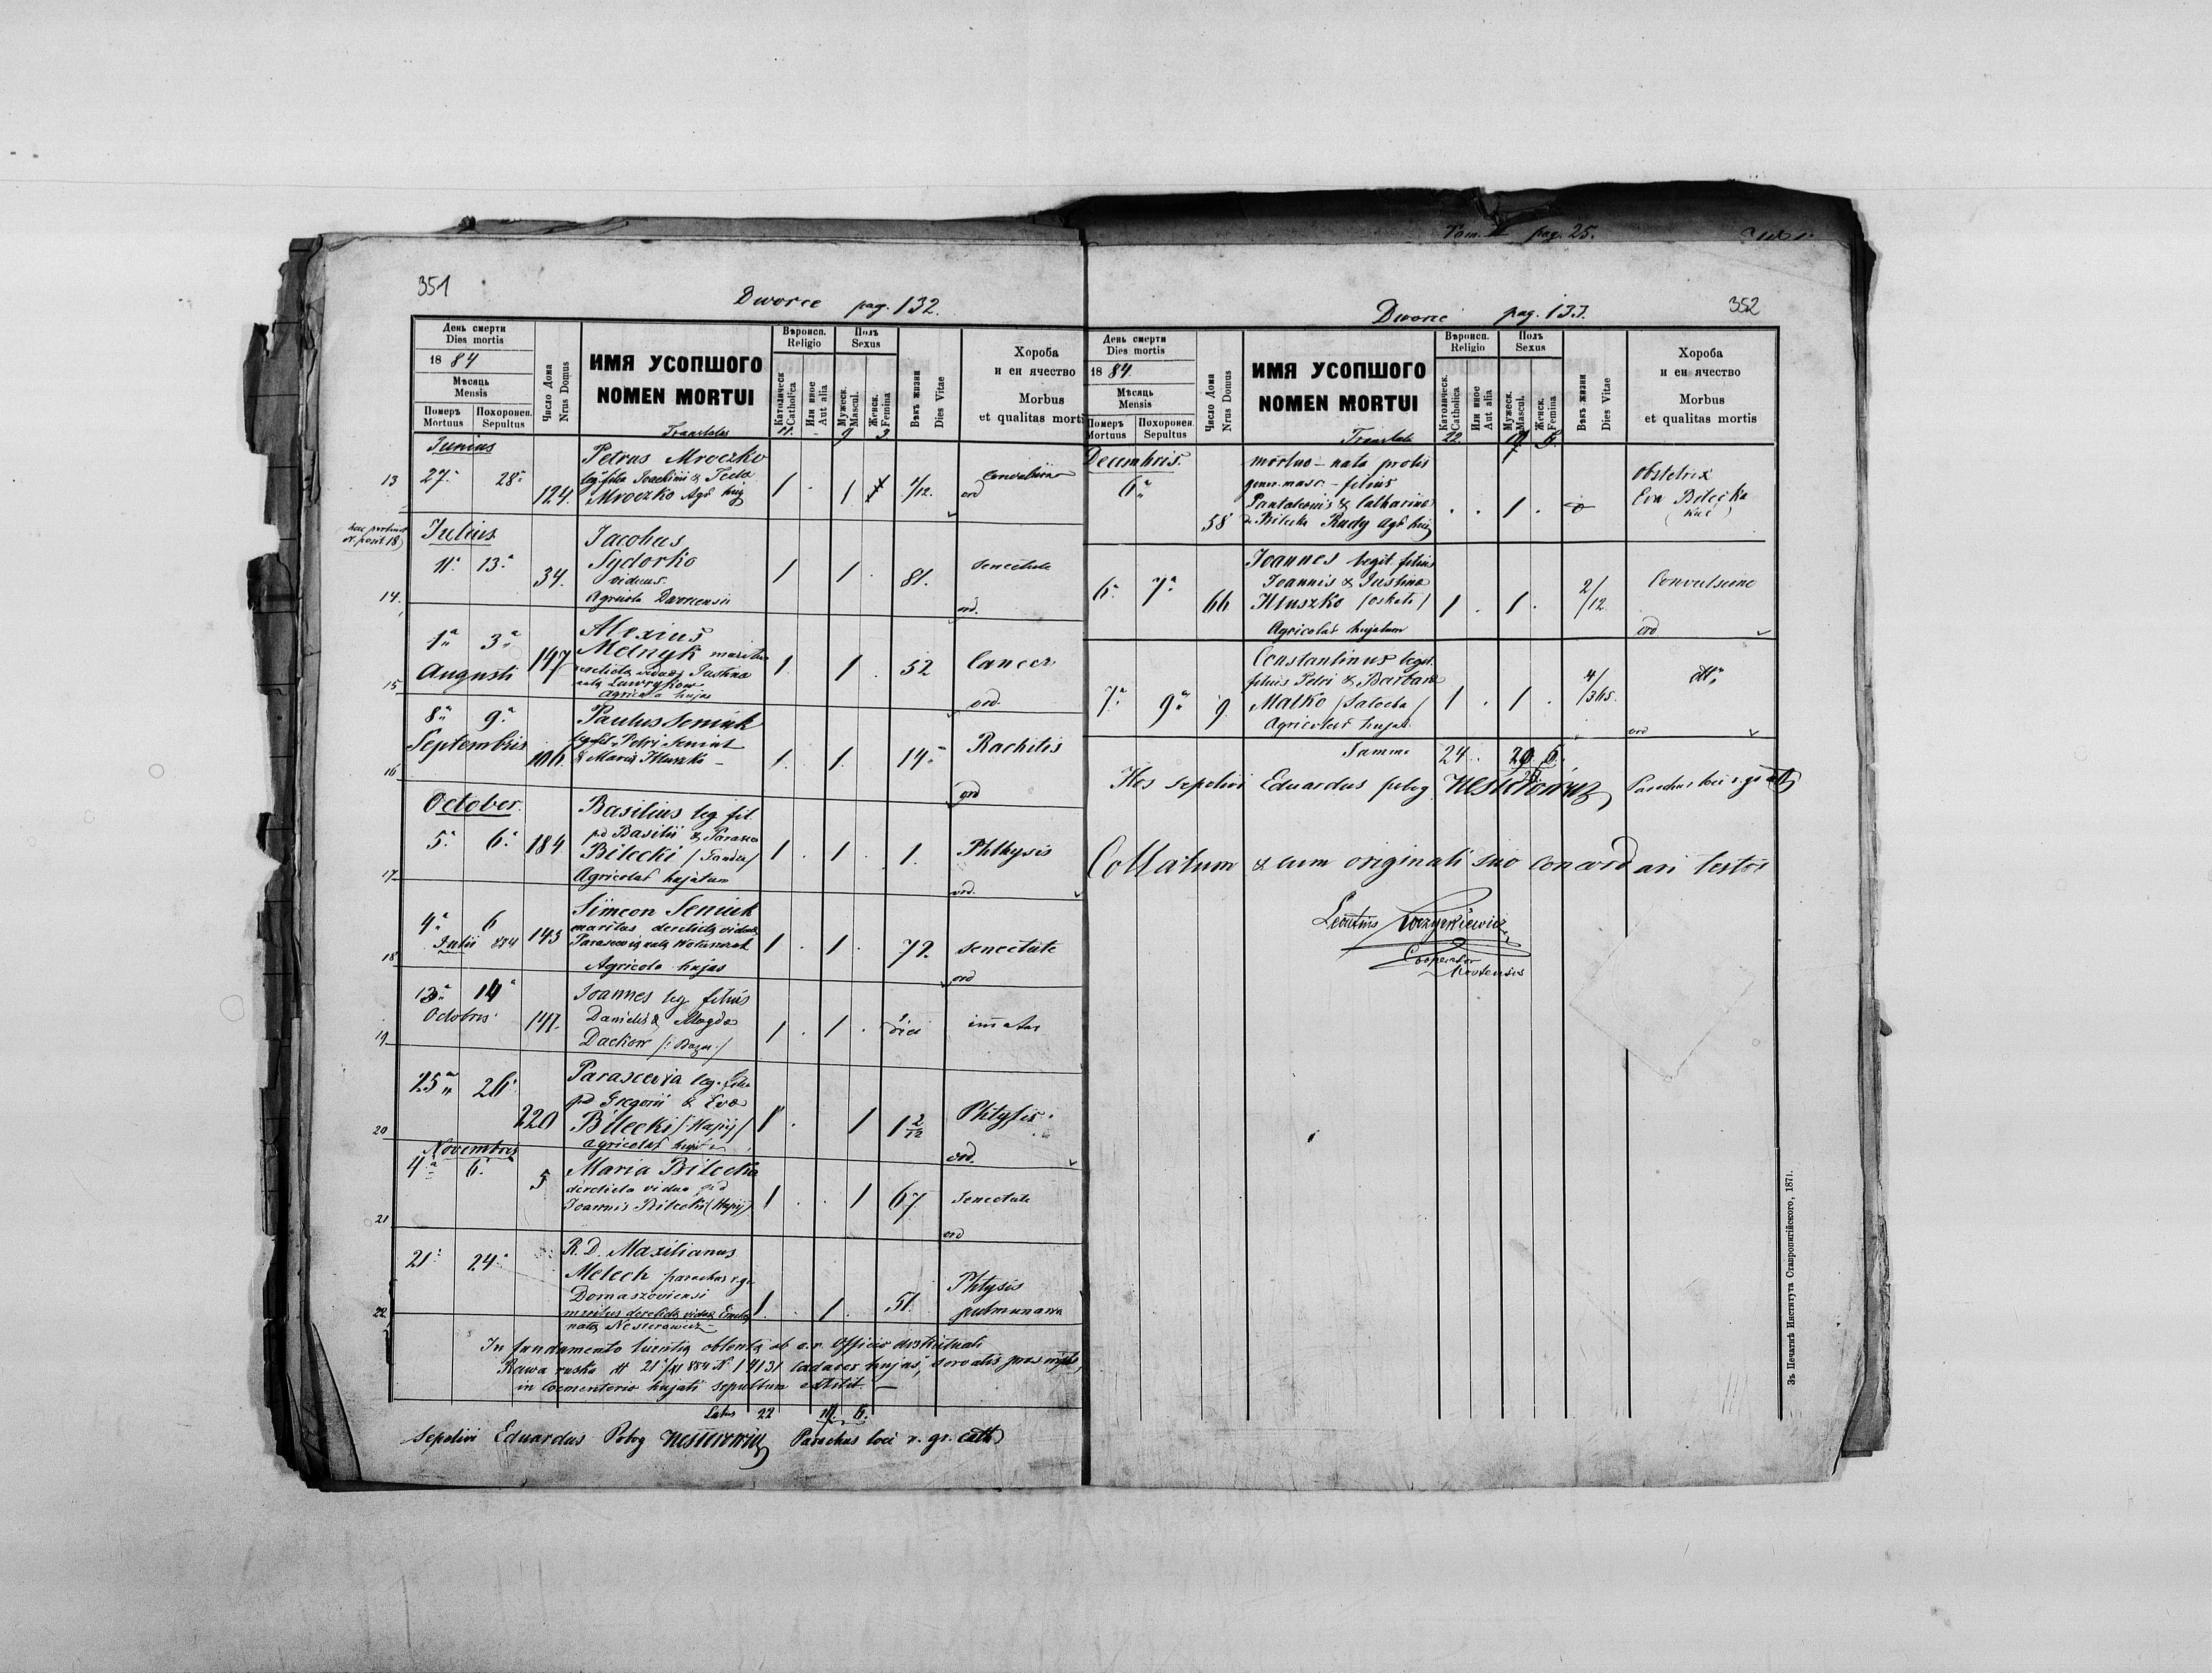 351
Dworce pag. 132.
День смерти
Dies mortis
1884
Мѣсяць
Mensis
Померъ
Mortuus
Похоронен.
Sepultus
Число Дома
Nrus Domus
ИМЯ УСОПШОГО
NOMEN MORTUI
Вѣроисп.
Religio
Католическ
Catholica
Или иное
Aut alia
Полъ
Sexus
Мужеск.
Mascul.
Женск.
Femina
Вѣкъ жизни
Dies Vitae
Хороба
и еи ячество
Morbus
et qualitas mortis
11. - 9 3
Junius
13 27. 28. 124. Petrus Mroczko
Joachimi & Tecla
Mroczko
1 . 1 1/12. ord
Julius
14. 11. 13. 34. Jacobus
Sydorko
viduus.
Agricola Dworcensis
1 1 . 81. Senectute
ord.
15 1a 3a
Augusti 147 Alexius
Melnyk
derelicta vidua Justina
nata Lawrykow
Agricola hujas
1. 1 . 52 Cancer
ord.
16 8a 9a
Septembris 106. Paulus Seniuk
Petri Seniuk
& Maria Hluszko -
1. 1. 14 Rachitis
ord
October.
17 5. 6. 184. Basilius leg fil.
pd Basilii &
Bilecki
Agricolar hujatum
1 . 1 . 1. Phthysis
ord.
18 4a 6
Julii 884 143 Simeon Seniuk
maritus derelicta vidua
nata
Agricola hujas
1 . 1 . 72. senectute
ord
19 13a 14a
Octobris 147. Joannes leg filius
Danielis & Magda
Dackow
1 . 1 . immatur
20 25a 26. 220 Parascevia leg. filia
pd Gregorii & Eva
Bilecki /Hapij/
agricolar
1 . 1 1 2/12 Phtysis.
ord.
Novembris
21 4a 6. 5 Maria Bilecka
derelicta vidua pd
Joannis Bilecki (Hapij)
1 . . 1 67 Senectute
ord
22 21. 24. R. D. Maxilianus
Melech parochus r.g.
Domaszoviensi
maritus derelicta vidua
nata Nesterowicz
1. . 1. 51. Phtysis
pulmunara
In fundamento obtenta ab Officio districtuali
Rawa ruska 21/XI 884 N. 14131 cadaver hujus,
in coementerio hujati sepultum extitit. -
Latus 22 6.
Sepelivi Eduardus Pobog Nesterowicz Parochus loci r. gr. cath
Tom. pag. 25.
Dworce pag. 133.
352
День смерти
Dies mortis
1884.
Мѣсяць
Mensis
Померъ
Mortuus
Похоронен.
Sepultus
Число Дома
Nrus Domus
ИМЯ УСОПШОГО
NOMEN MORTUI
Вѣроисп.
Religio
Католическ.
Catholica
Или иное
Aut alia
Полъ
Sexus
Мужеск.
Mascul.
Женск.
Femina
Вѣкъ жизни
Dies Vitae
Хороба
и еи ячество
Morbus
et qualitas mortis
22. 6.
Decembris.
6a 58 mortuo - nata prolis
gener. masc. - filius
Pantaleonis & Catharina
Bilecka Rudy
. . 1 . 0 obstetrix
Eva Bilecka
6a 7a 66 Joannes legit. filius
Joannis & Justina
Hluszko
Agricolar hujatum
1 . 1 . 2/12. Convulsione
ord
7a 9a 9 Constantinus legit.
filius Petri & Barbara
Malko
Agricolar
1 . 1 . 4/365. dtt.
ord
Summa 24. 6.
Hos sepelivi Eduardus pobog Nesterowicz Parochus loci r. gr. cath
Collatum & cum originali suo concordari testor
Cooperator